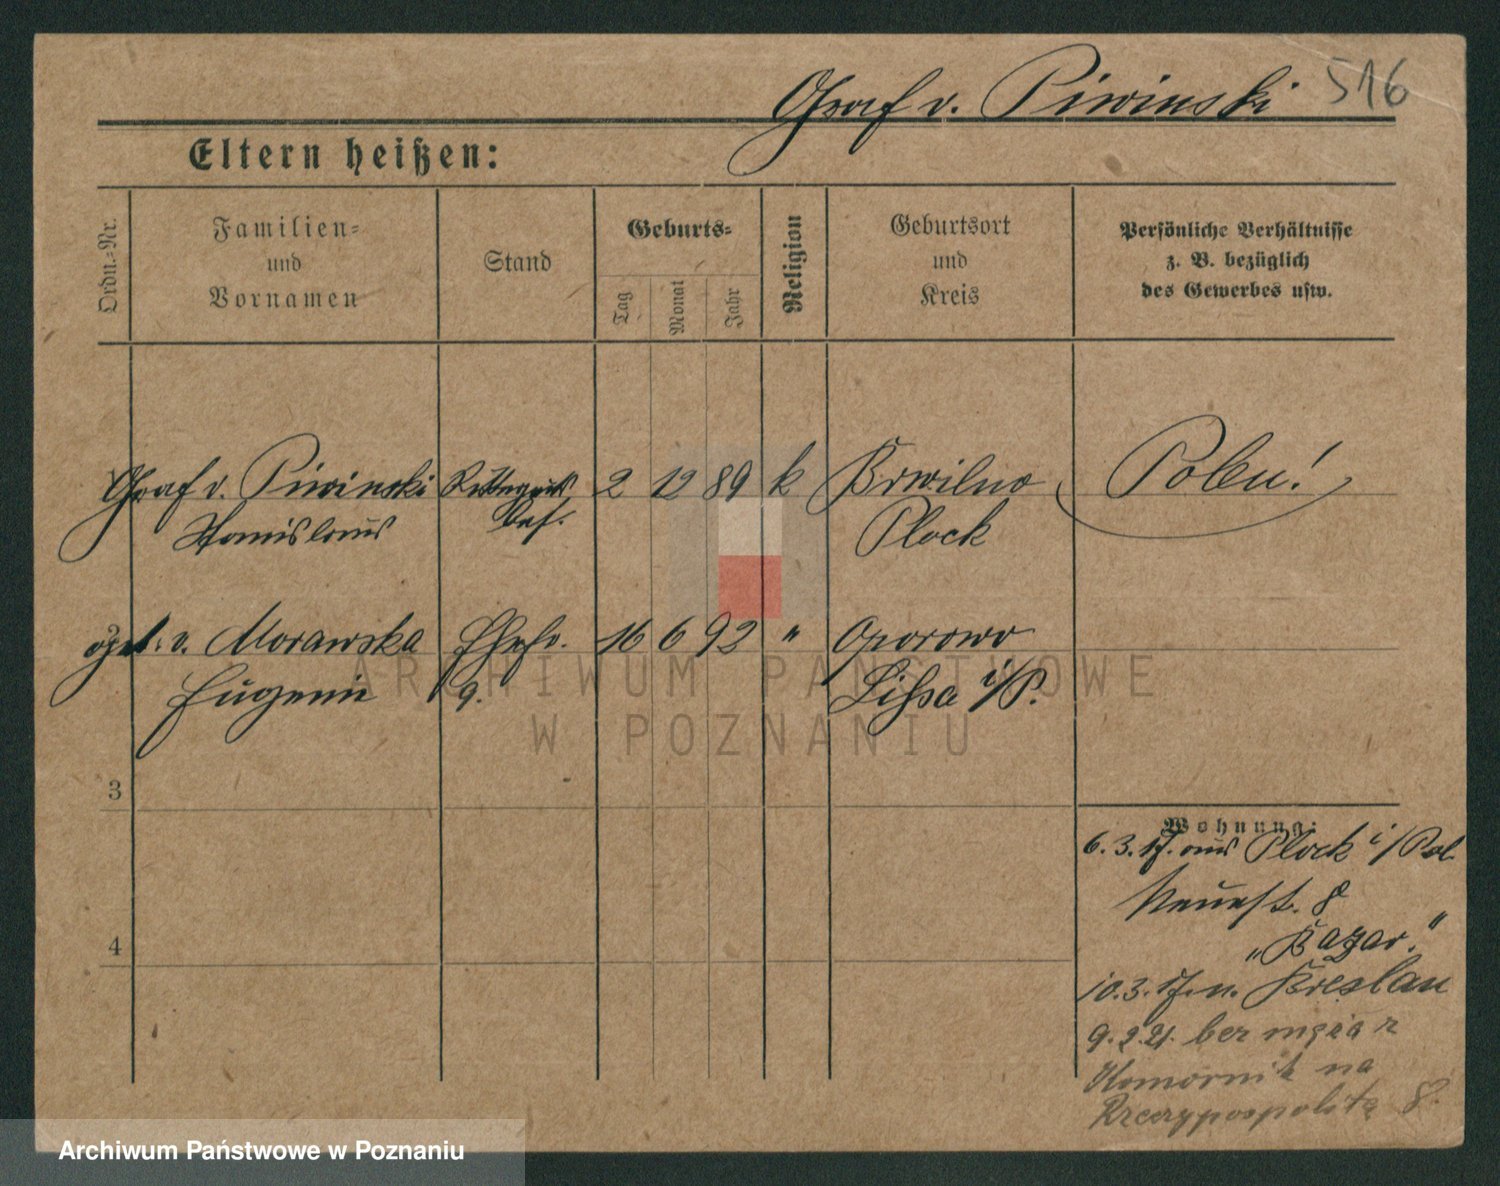 Graf v. Piwinski 516
Eltern heißen:
Ordn.-Nr.
Familien-
und
Vornamen
Stand
Geburts-
Tag
Monat
Jahr
Religion
Geburtsort
und
Kreis
Persönliche Verhältnisse
z. B. bezüglich
des Gewerbes usw.
Graf v. Piwinski Rittergut 2 12 89 k Brwilno Polen!
Stanislaus bes. Plock
2
geb. v. Morawska Ehefr. 16 6 92 " Oporowo
Eugenie g. Lissa i/P.
3
4
Wohnung:
6. 3. 17. aus Plock i/Pol.
Neuestr. 8
"Bazar."
10. 3. 17. n. Breslau
9. 2. 21. bez męża z
Komornik na
Rzeczypospolitą 8.
ARCHIWUM PAŃSTWOWE
W POZNANIU
Archiwum Państwowe w Poznaniu